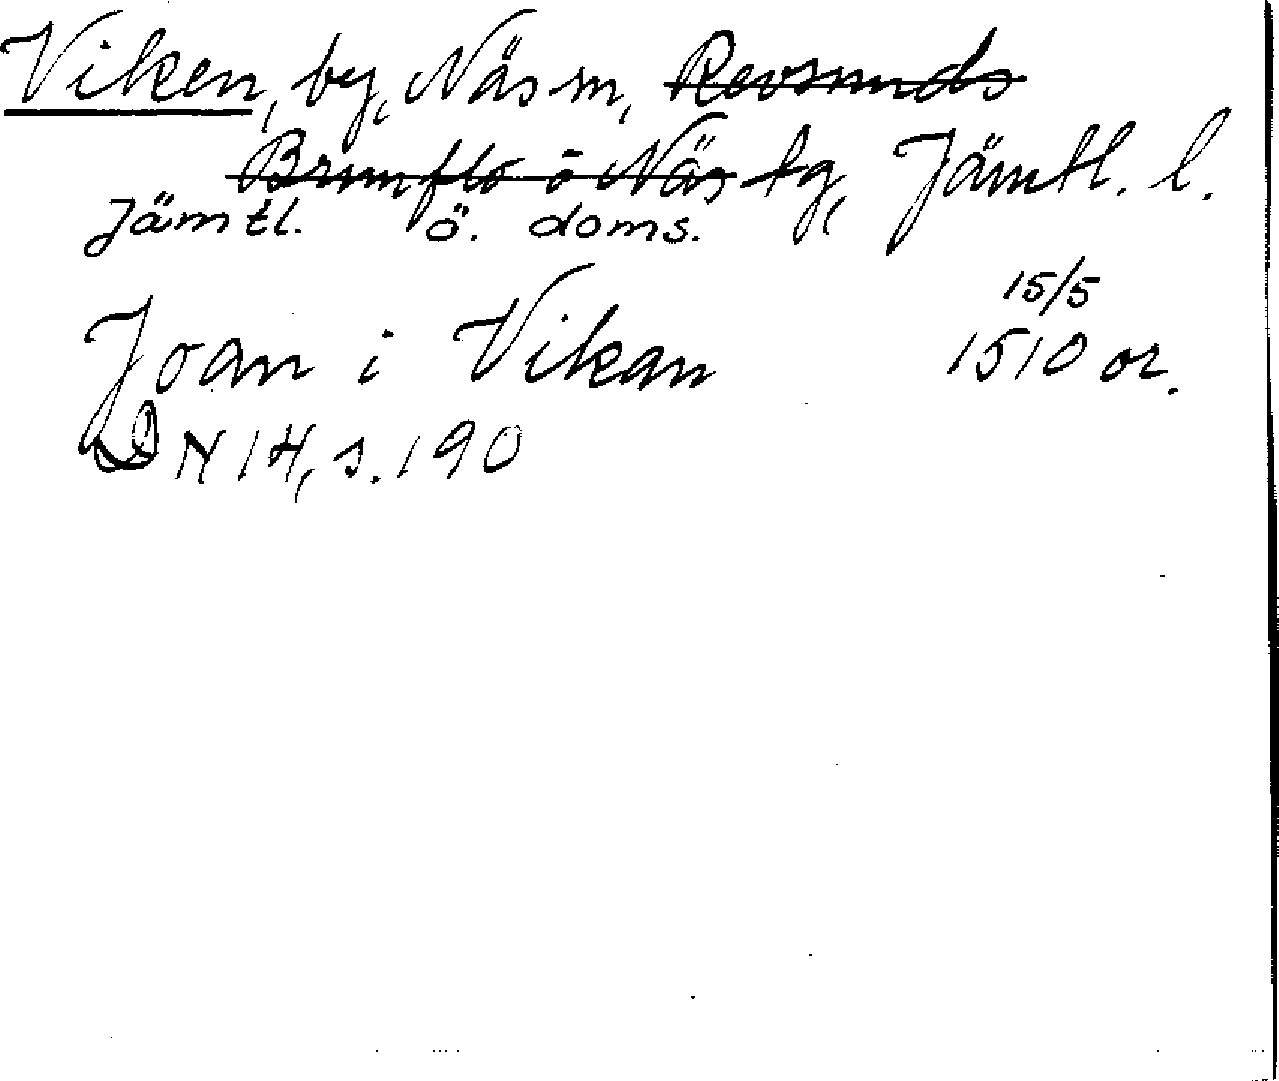 Viken, by, Näs sn, Revsunds
Brunflo o Näs tg, Jämtl. l.
Jämtl. ö. doms.
15/5
Joan i Vikan 1510 or.
DN 14, s. 190